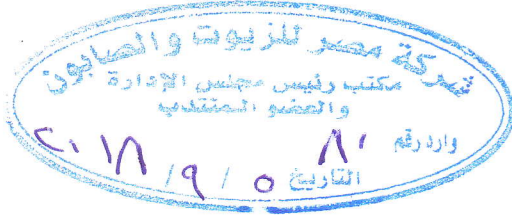 شركة مصر للزيوت والصابون
مكتب رئيس مجلس الإدارة
والعضو المنتدب
وارد رقم ٨٠١
التاريخ ٥ / ٩ / ٢٠١٨